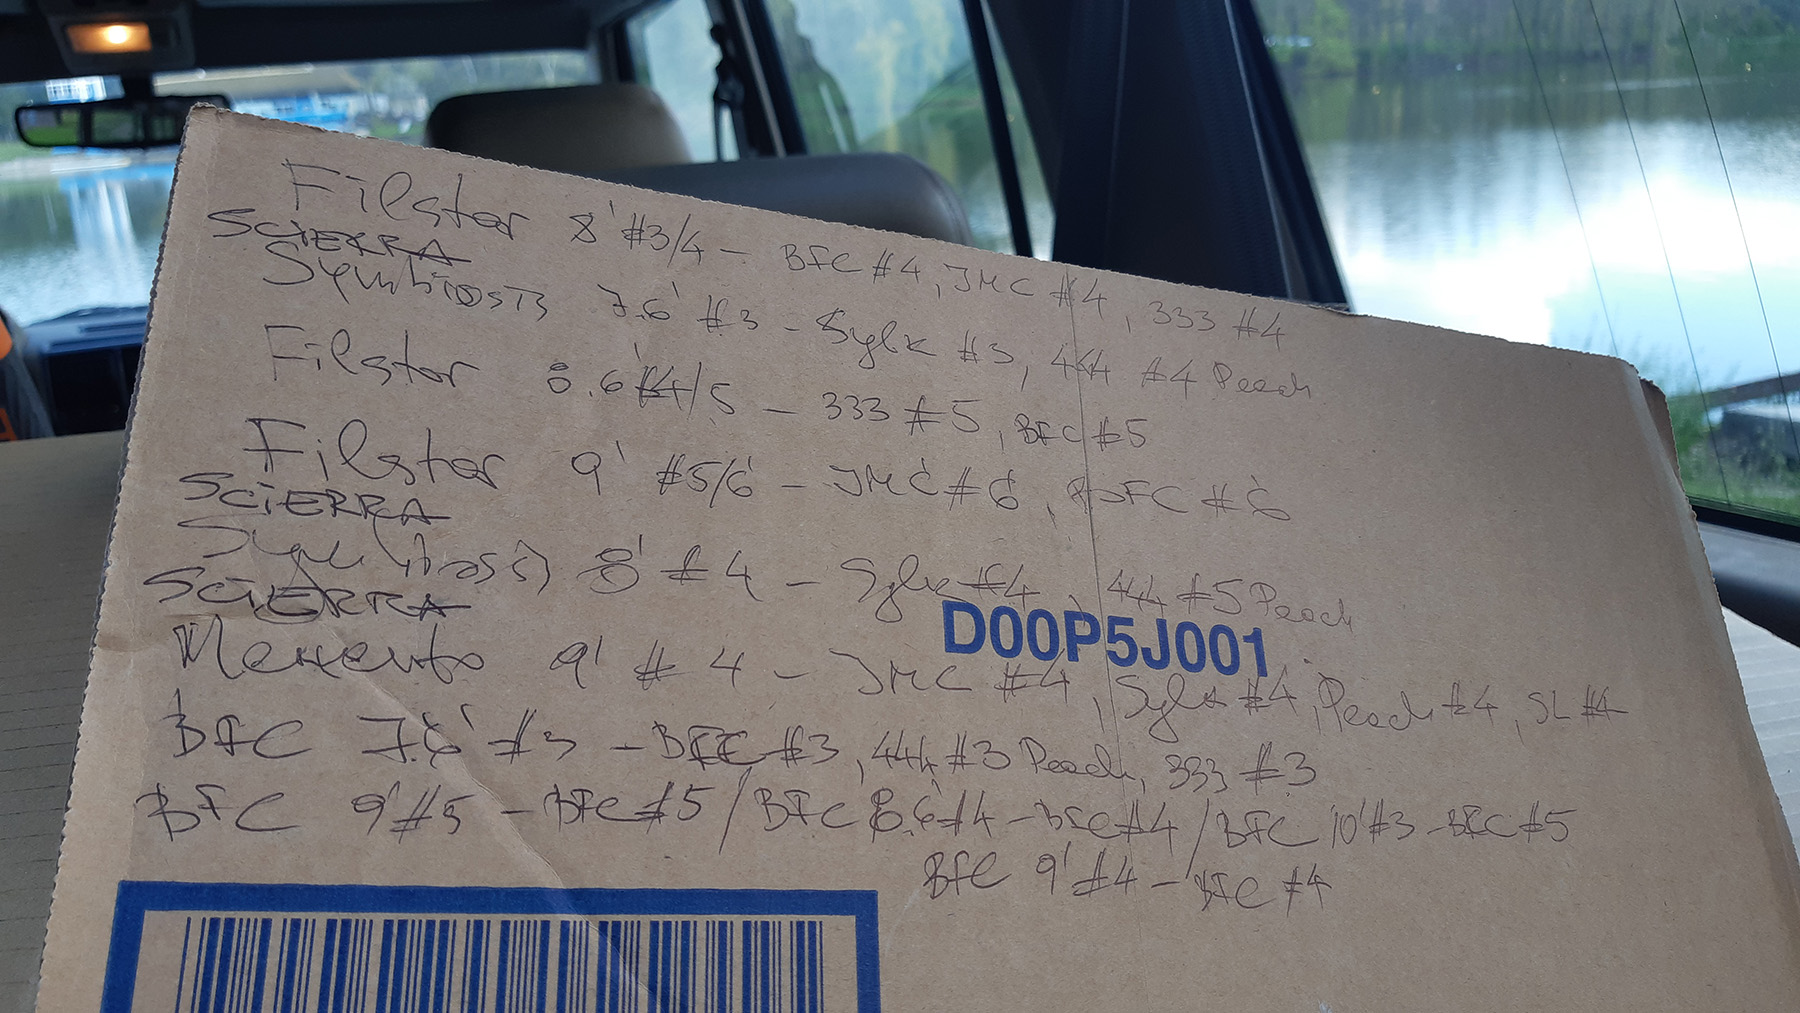 Filstar 8' #3/4 - BFC #4, JMC #4, 333 #4
SCiERRA
Symbiosis 7.6' #3 - Sylk #3, 444 #4 Peach
Filstar 8.6' #4/5 - 333 #5, BFC #5
Filstar 9' #5/6 - JMC #6, BFC #6
SCiERRA
Symbiosis 8' #4 - Sylk #4, 444 #5 Peach
SCiERRA
D00P5J001
Memento 9' #4 - JMC #4, Sylk #4, Peach #4, SL #4
BFC 7.6' #3 - BFC #3, 444 #3 Peach, 333 #3
BFC 9' #5 - BFC #5 / BFC 8.6' #4 - BFC #4 / BFC 10' #3 - BFC #5
BFC 9' #4 - BFC #4